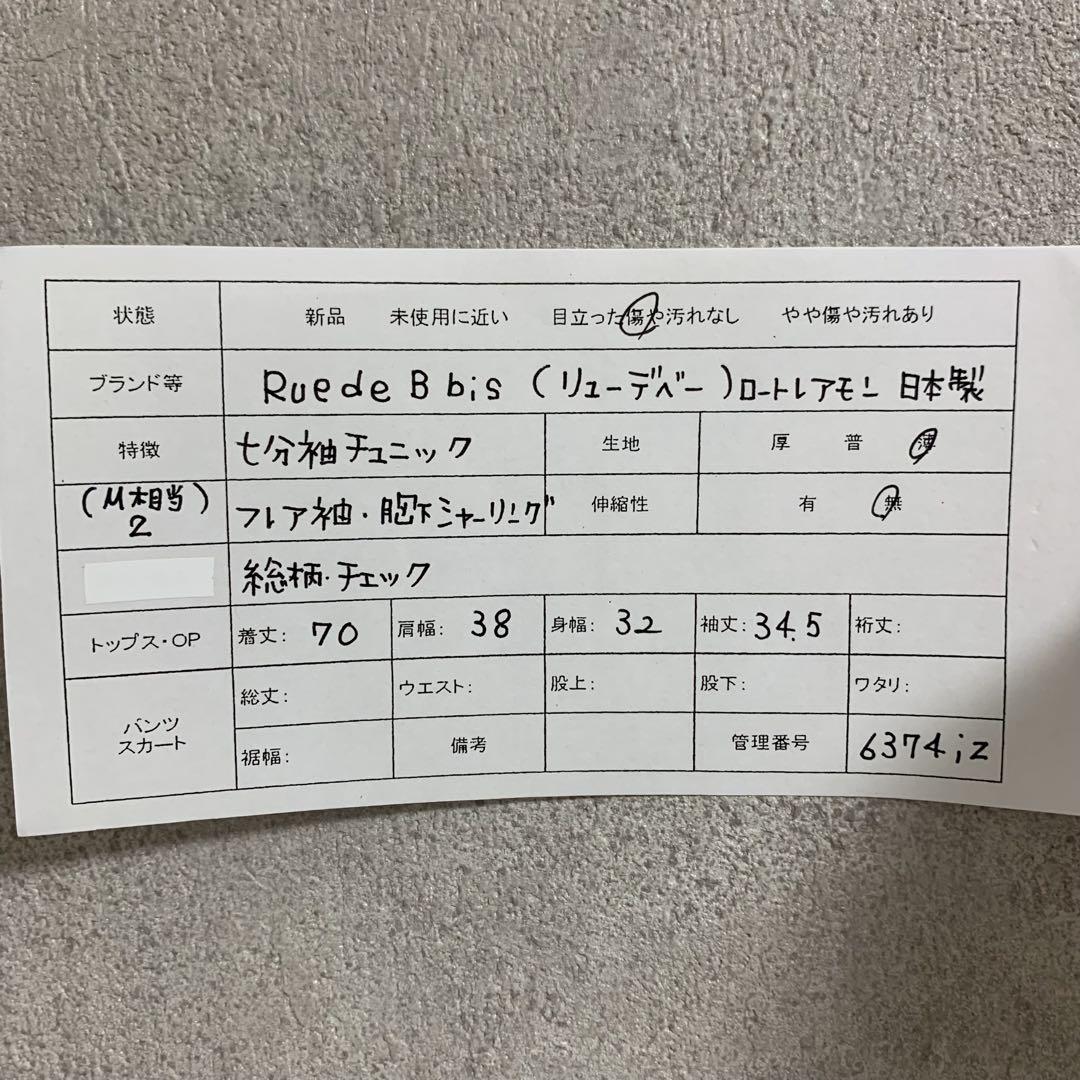 状態 新品 未使用に近い 目立った傷や汚れなし やや傷や汚れあり
ブランド等 Rue de B bis (リューデベー) ロートレアモン 日本製
特徴 七分袖チュニック 生地 厚 普 薄
(M相当) フレア袖・胸下シャーリング 伸縮性 有 無
2
総柄・チェック
トップス・OP 着丈: 70 肩幅: 38 身幅: 32 袖丈: 34.5 裄丈:
パンツ 総丈: ウエスト: 股上: 股下: ワタリ:
スカート 裾幅: 備考 管理番号 6374iz